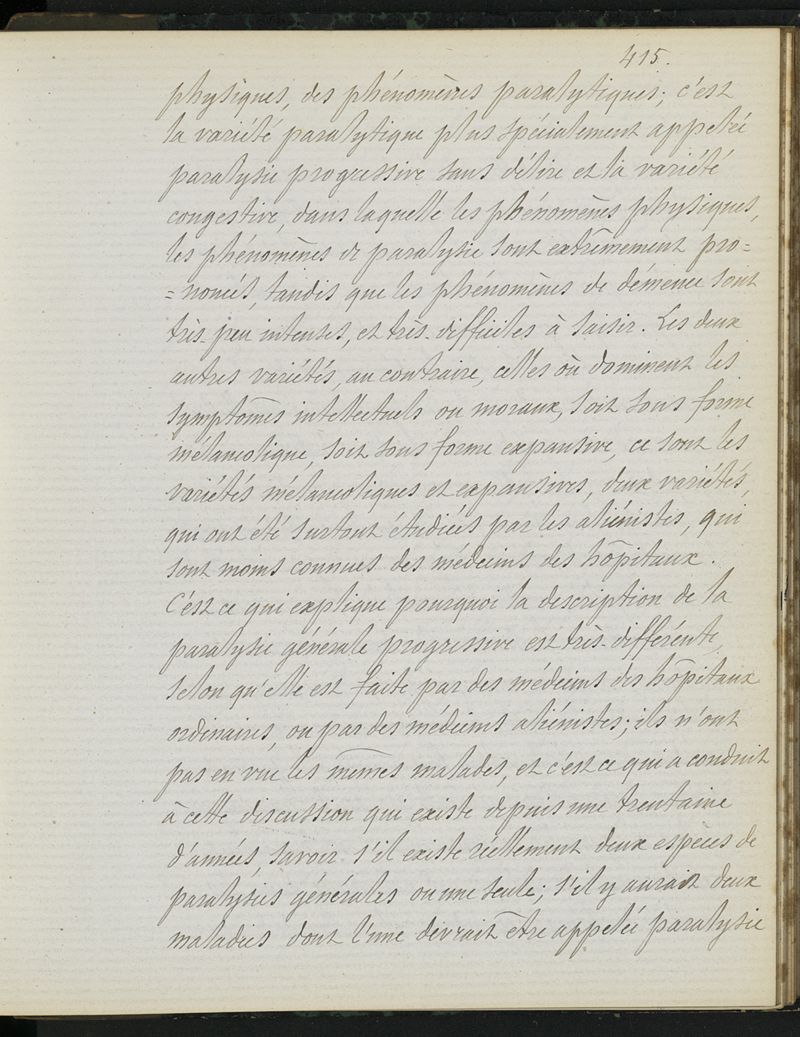 415.
physiques, des phénomènes paralytiques; c'est
la variété paralytique plus spécialement appelée
paralysie progressive sans délire et la variété
congestive, dans laquelle les phénomènes physiques,
les phénomènes de paralysie sont extrêmement pro=
=noncés, tandis que les phénomènes de démence sont
très-peu intenses, et très-difficiles à saisir. Les deux
autres variétés, au contraire, celles où dominent les
symptômes intellectuels ou moraux, soit sous forme
mélancolique, soit sous forme expansive, ce sont les
variétés mélancoliques et expansives, deux variétés,
qui ont été surtout étudiées par les aliénistes, qui
sont moins connues des médecins des hôpitaux.
C'est ce qui explique pourquoi la description de la
paralysie générale progressive est très-différente,
selon qu'elle est faite par des médecins des hôpitaux
ordinaires, ou par des médecins aliénistes; ils n'ont
pas en vue les mêmes malades, et c'est ce qui a conduit
à cette discussion qui existe depuis une trentaine
d'années, savoir s'il existe réellement deux espèces de
paralysies générales ou une seule; s'il y aurait deux
maladies dont l'une devrait être appelée paralysie